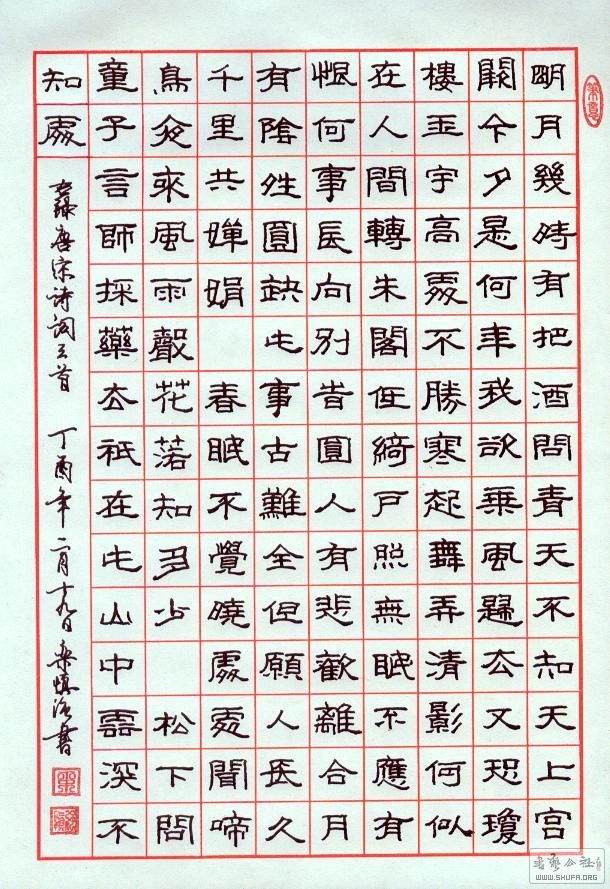 明月幾時有把酒問青天不知天上宮
闕今夕是何年我欲乘風歸去又恐瓊
樓玉宇高處不勝寒起舞弄清影何似
在人間轉朱閣低綺戶照無眠不應有
恨何事長向別昔圓人有悲歡離合月
有陰姓圓缺此事古難全但願人長久
千里共嬋娟 春眠不覺曉處處聞啼
鳥夜來風雨聲花落知多少 松下問
童子言師採藥去祇在此山中雲深不
知處
錄唐宋诗词三首 丁酉年二月十九日 書
書藝公社
WWW.SHUFA.ORG